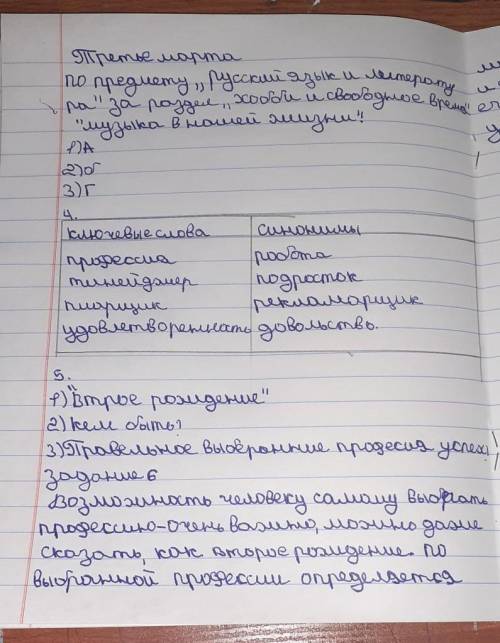 Третье марта
по предмету „русский язык и литерату
ра" за раздел „хобби и свободное время"
"музыка в нашей жизни"!
1)А
2)б
3)Г
4.
ключевые слова синонимы
профессия роабта
тинейджер подросток
пиарщик рекламорщик
удовлетворенность довольство.
5.
1)"Втрое рождение"
2)кем быть?
3)Правельное выбранние професия успех!
Задание 6
Возможность человеку самому выбрать
профессию-очень важно, можно даже
сказать, как второе рождение. По
выбранной профессии определяется